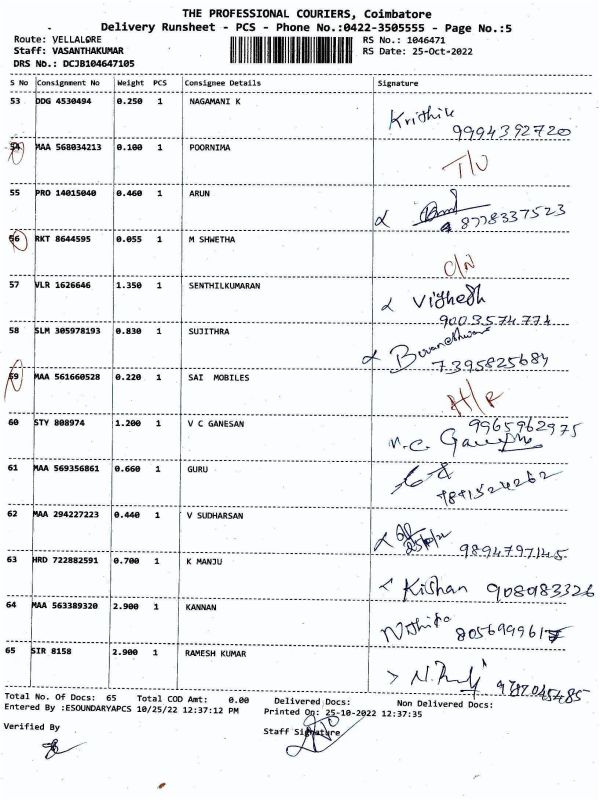 THE PROFESSIONAL COURIERS, Coimbatore
Delivery Runsheet - PCS - Phone No.:0422-3505555 - Page No.:5
Route: VELLALORE RS No.: 1046471
Staff: VASANTHAKUMAR RS Date: 25-Oct-2022
DRS No.: DCJB104647105
S No Consignment No Weight PCS Consignee Details Signature
53 DDG 4530494 0.250 1 NAGAMANI K
9994392720
54 MAA 568034213 0.100 1 POORNIMA
55 PRO 14015040 0.460 1 ARUN
8778337523
56 RKT 8644595 0.055 1 M SHWETHA
57 VLR 1626646 1.350 1 SENTHILKUMARAN
9003574774
58 SLM 305978193 0.830 1 SUJITHRA
7395825684
59 MAA 561660528 0.220 1 SAI MOBILES
60 STY 808974 1.200 1 V C GANESAN
9965962975
61 MAA 569356861 0.660 1 GURU
62 MAA 294227223 0.440 1 V SUDHARSAN
9894797145
63 HRD 722882591 0.700 1 K MANJU
Kishan 9080983326
64 MAA 563389320 2.900 1 KANNAN
65 SIR 8158 2.900 1 RAMESH KUMAR
Total No. Of Docs: 65 Total COD Amt: 0.00 Delivered Docs: Non Delivered Docs:
Entered By :ESOUNDARYAPCS 10/25/22 12:37:12 PM Printed On: 25-10-2022 12:37:35
Verified By Staff Signature